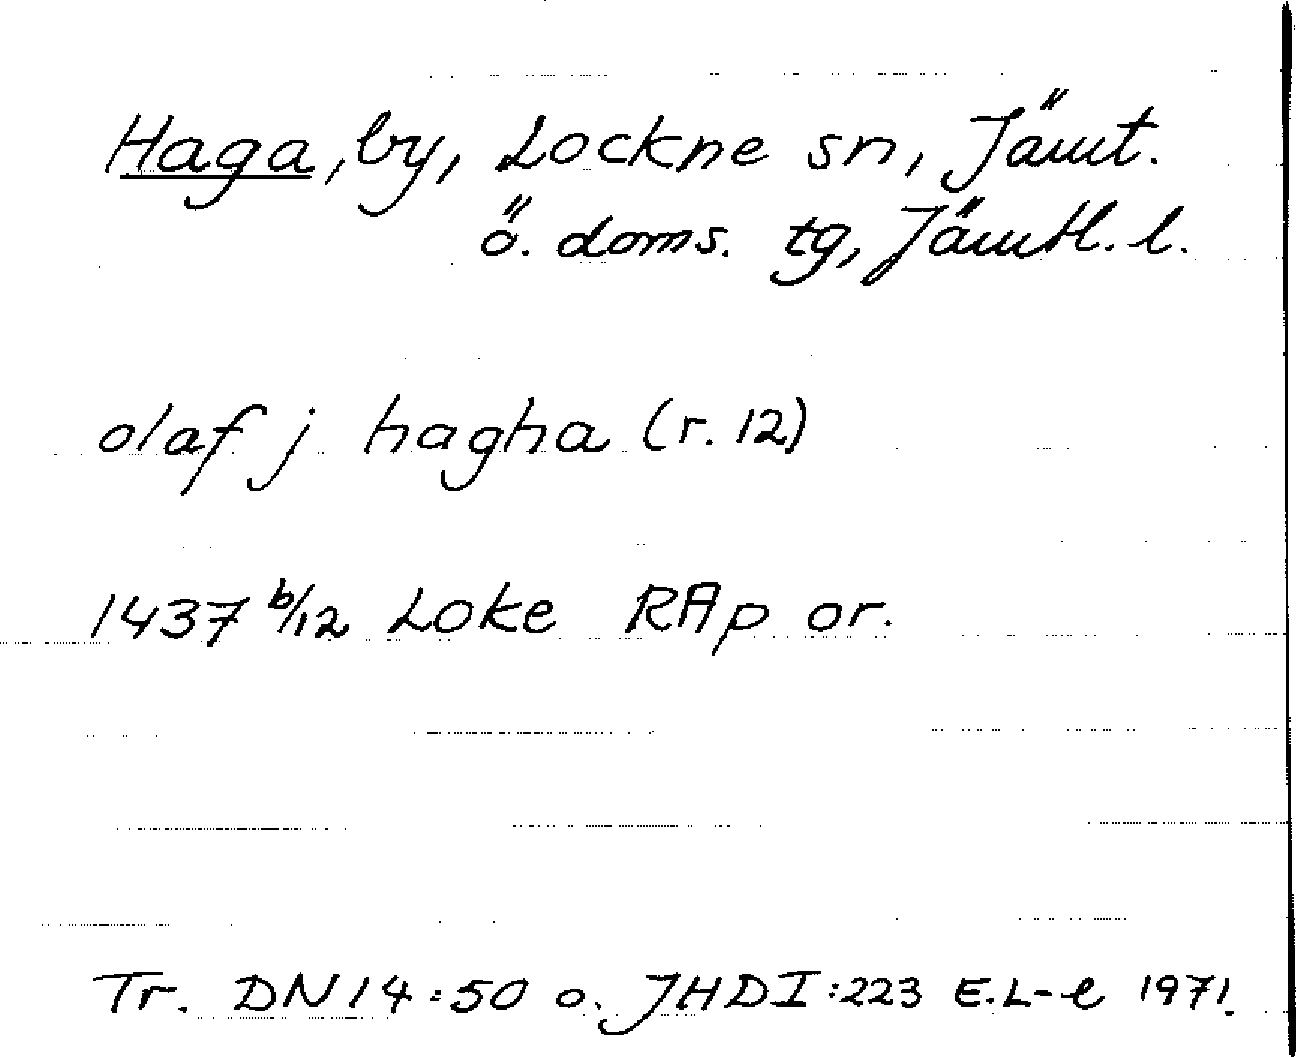 Haga, by, Lockne sn, Jämt.
ö. doms. tg, Jämtl. l.
olaf j hagha (r. 12)
1437 6/12 Loke RAp or.
Tr. DN 14:50 o. JHD I:223 E.L-e 1971.